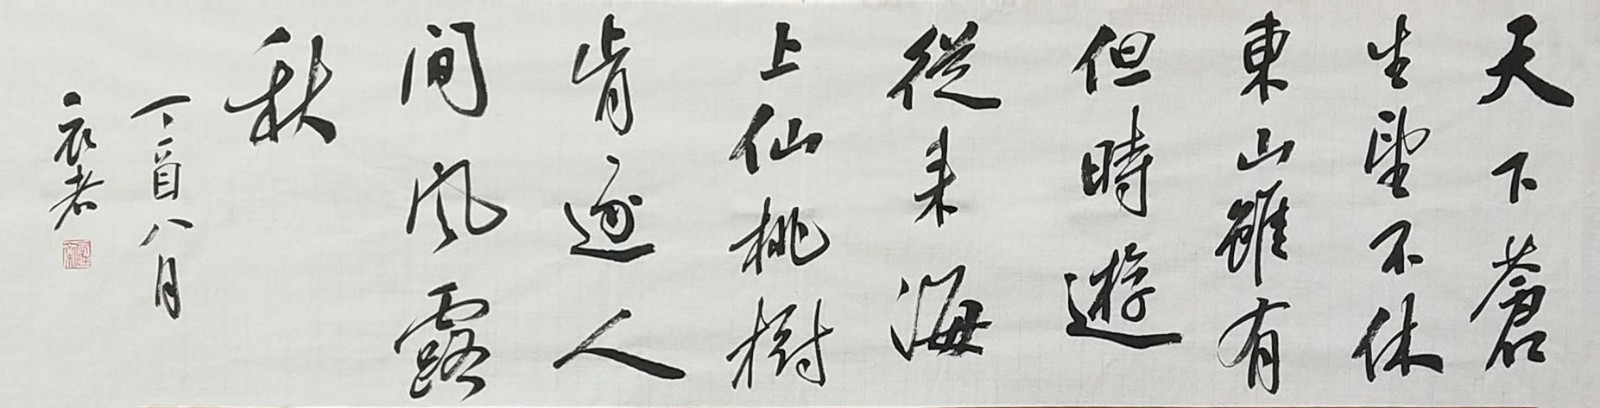 天下蒼
生望不休
東山雖有
但時遊
從来海
上仙桃樹
肯逐人
間風露
秋
丁酉八月